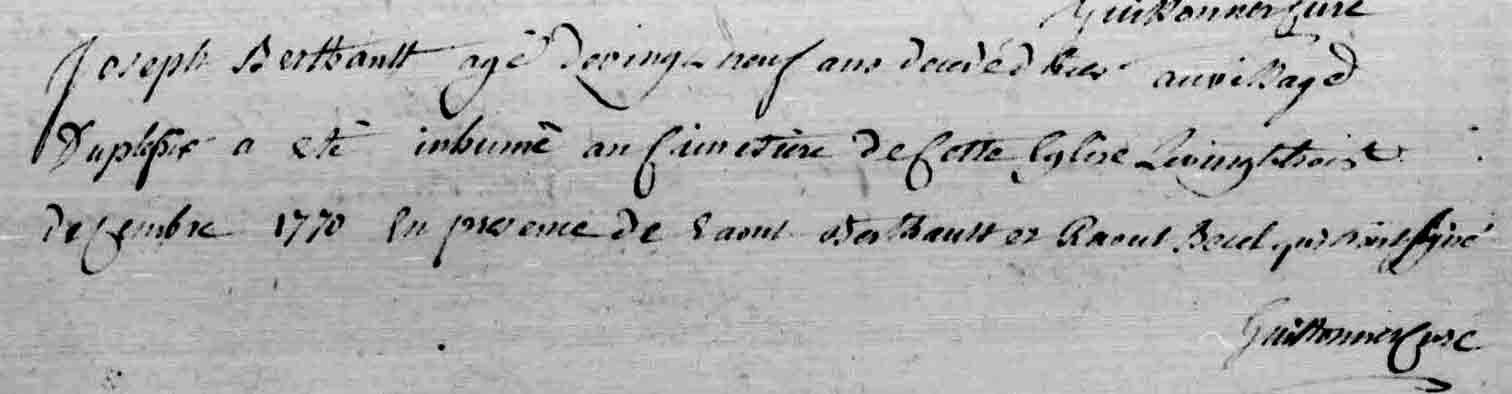 Guillonnier Curé
Joseph Berthault agé de vingt neuf ans decedé hier au village
Duplessix a eté inhumé au Cimetiere de Cette Eglise le vingt trois
decembre 1770 En presence de Raoul Berthault et Raoul Becel qui n'ont signé
Guillonnier Curé